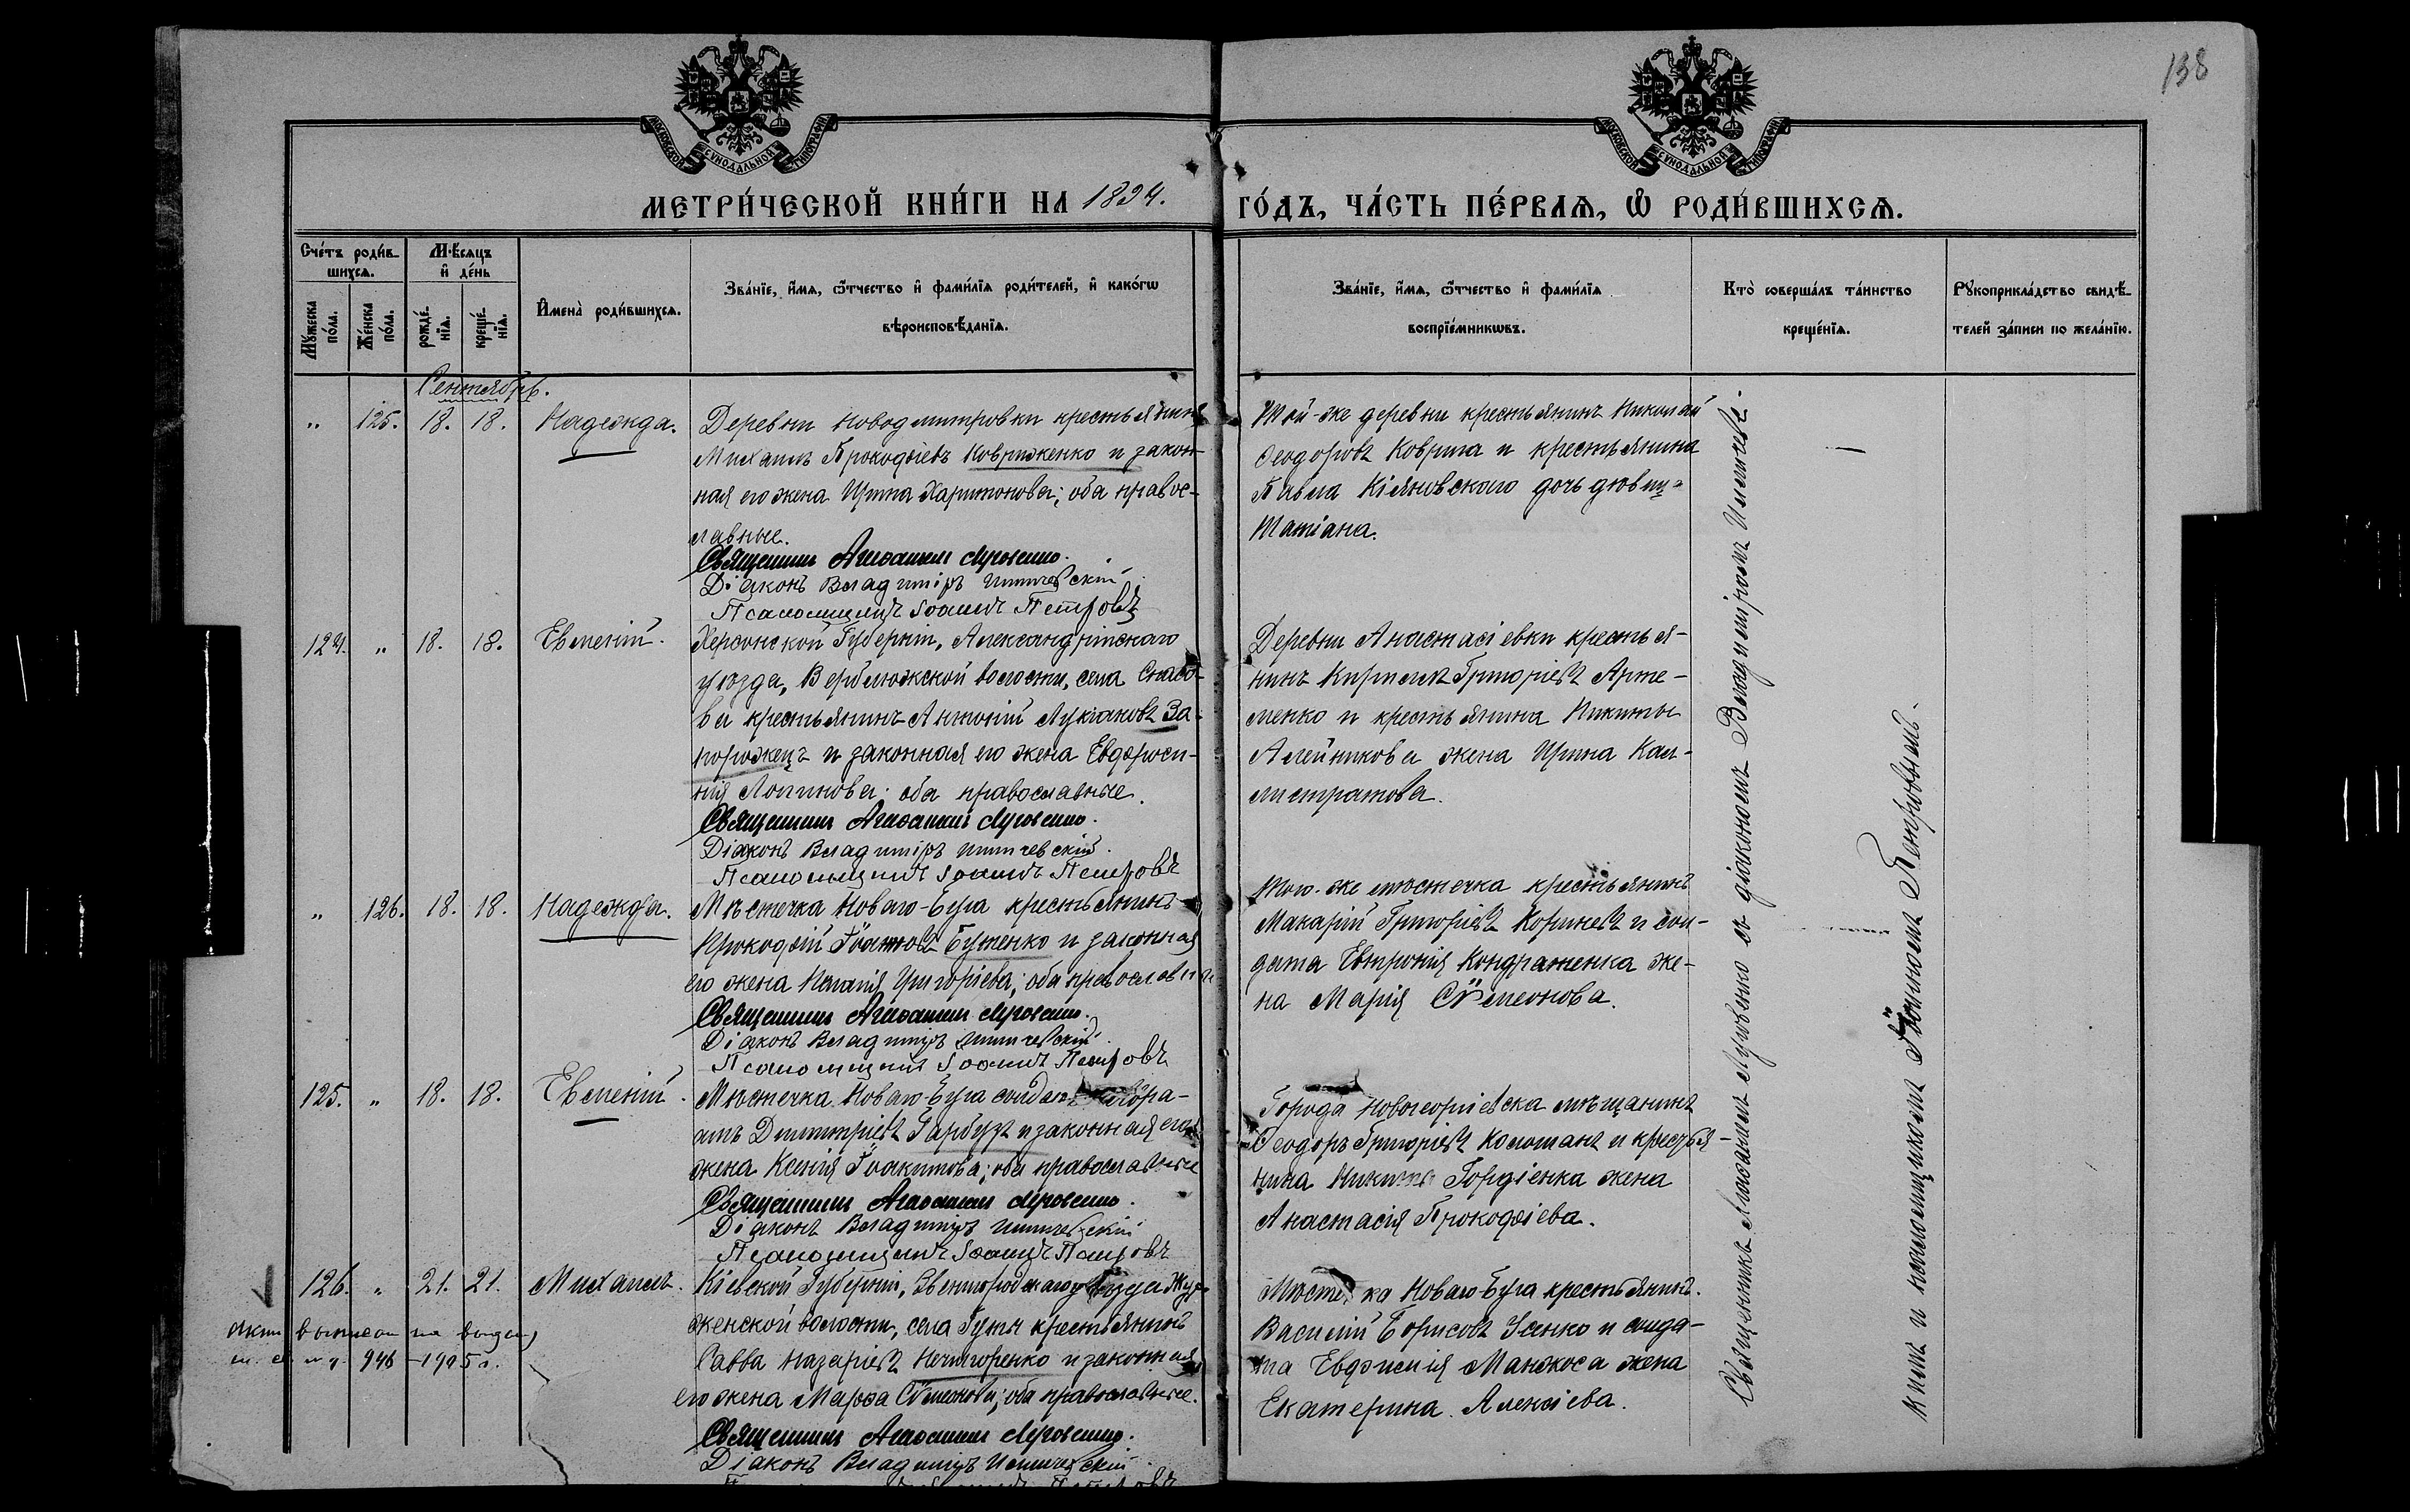 138
МОСКОВСКОЙ СѴНОДАЛЬНОЙ ТИПОГРАФІИ
МОСКОВСКОЙ СѴНОДАЛЬНОЙ ТИПОГРАФІИ
МЕТРИ́ЧЕСКОЙ КНИ́ГИ НА 1894. ГО́ДЪ, ЧА́СТЬ ПЕ́РВАѦ, Ѡ РОДИ́ВШИХСѦ.
Счетъ родив-
шихсѧ.
Мꙋжеска пола.
Женска пола.
Мѣсѧцъ
и день
рожде-
нїѧ.
креще-
нїѧ.
Имена родившихсѧ.
Званїе, имѧ, ѿчество и фамилїѧ родителей, и какогѡ
вѣроисповѣданїѧ.
Званїе, имѧ, ѿчество и фамилїѧ
воспрїемникѡвъ.
Кто совершалъ таинство
крещенїѧ.
Рꙋкоприкладство свидѣ-
телей записи по желанїю.
Сентябрь.
" 125. 18. 18. Надежда.
Деревни Новодмитровки крестьянинъ
Михаилъ Прокофіевъ Ковриженко и закон-
ная его жена Ирина Харитонова; оба право-
славные.
Священникъ Агафангелъ Луговенко.
Діаконъ Владиміръ
Псаломщикъ Іоаннъ Петровъ
Той-же деревни крестьянинъ Николай
Феодоровъ Коврига и крестьянина
Павла Кіяновскаго дочь дѣвица
Татіана.
124. " 18. 18. Евменій.
Херсонской Губерніи, Александрійскаго
уѣзда, Верблюжской волости, села Спасо-
ва крестьянинъ Антоній Лукіановъ За-
порожецъ и законная его жена Евфроси-
нія Логинова; оба православные.
Священникъ Агафангелъ Луговенко.
Діаконъ Владиміръ
Псаломщикъ Іоаннъ Петровъ
Деревни Анастасіевки крестья-
нинъ Кириллъ Григоріевъ Арте-
менко и крестьянина Никиты
Алейникова жена Ирина Кал-
листратова.
" 126. 18. 18. Надежда.
Мѣстечка Новаго-Буга крестьянинъ
Прокофій Буженко и законная
его жена Григоріева; оба православные
Священникъ Агафангелъ Луговенко.
Діаконъ Владиміръ
Псаломщикъ Іоаннъ Петровъ
Того-же мѣстечка крестьянинъ
Макарій Григоріевъ Корневъ и сол-
дата Евтропія Кондратенка же-
на Марія Сѵмеонова.
125. " 18. 18. Евменій.
Мѣстечка Новаго-Буга солдатъ
Димитріевъ Гарбузъ и законная его
жена Ксенія Іоакимова; оба православные
Священникъ Агафангелъ Луговенко.
Діаконъ Владиміръ
Псаломщикъ Іоаннъ Петровъ
Города Новогеоргіевска мѣщанинъ
Феодоръ Григоріевъ Коломанъ и крестья-
нина Никиты Гордіенка жена
Анастасія Прокофіева.
126. " 21. 21. Михаилъ.
Кіевской Губерніи, Звенигородскаго уѣзда
женской волости, села Гуты крестьянинъ
Савва Назаріевъ Нечигоренко и законная
его жена Марфа Сѵмеонова; оба православные.
Священникъ Агафангелъ Луговенко.
Діаконъ Владиміръ
Мѣстечка Новаго-Буга крестьянинъ
Василій Борисовъ Усенко и солда-
та Евфимія Манжоса жена
Екатерина Алексіева.
выписи
946 - 1905 г.
Священникъ Агафангелъ Луговенко съ діакономъ Владиміромъ
и псаломщикомъ Іоанномъ Петровымъ.